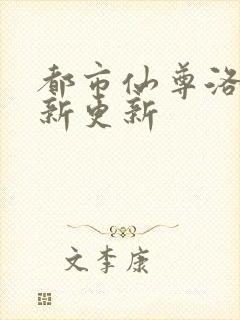 都市仙尊洛
新更新
文李康